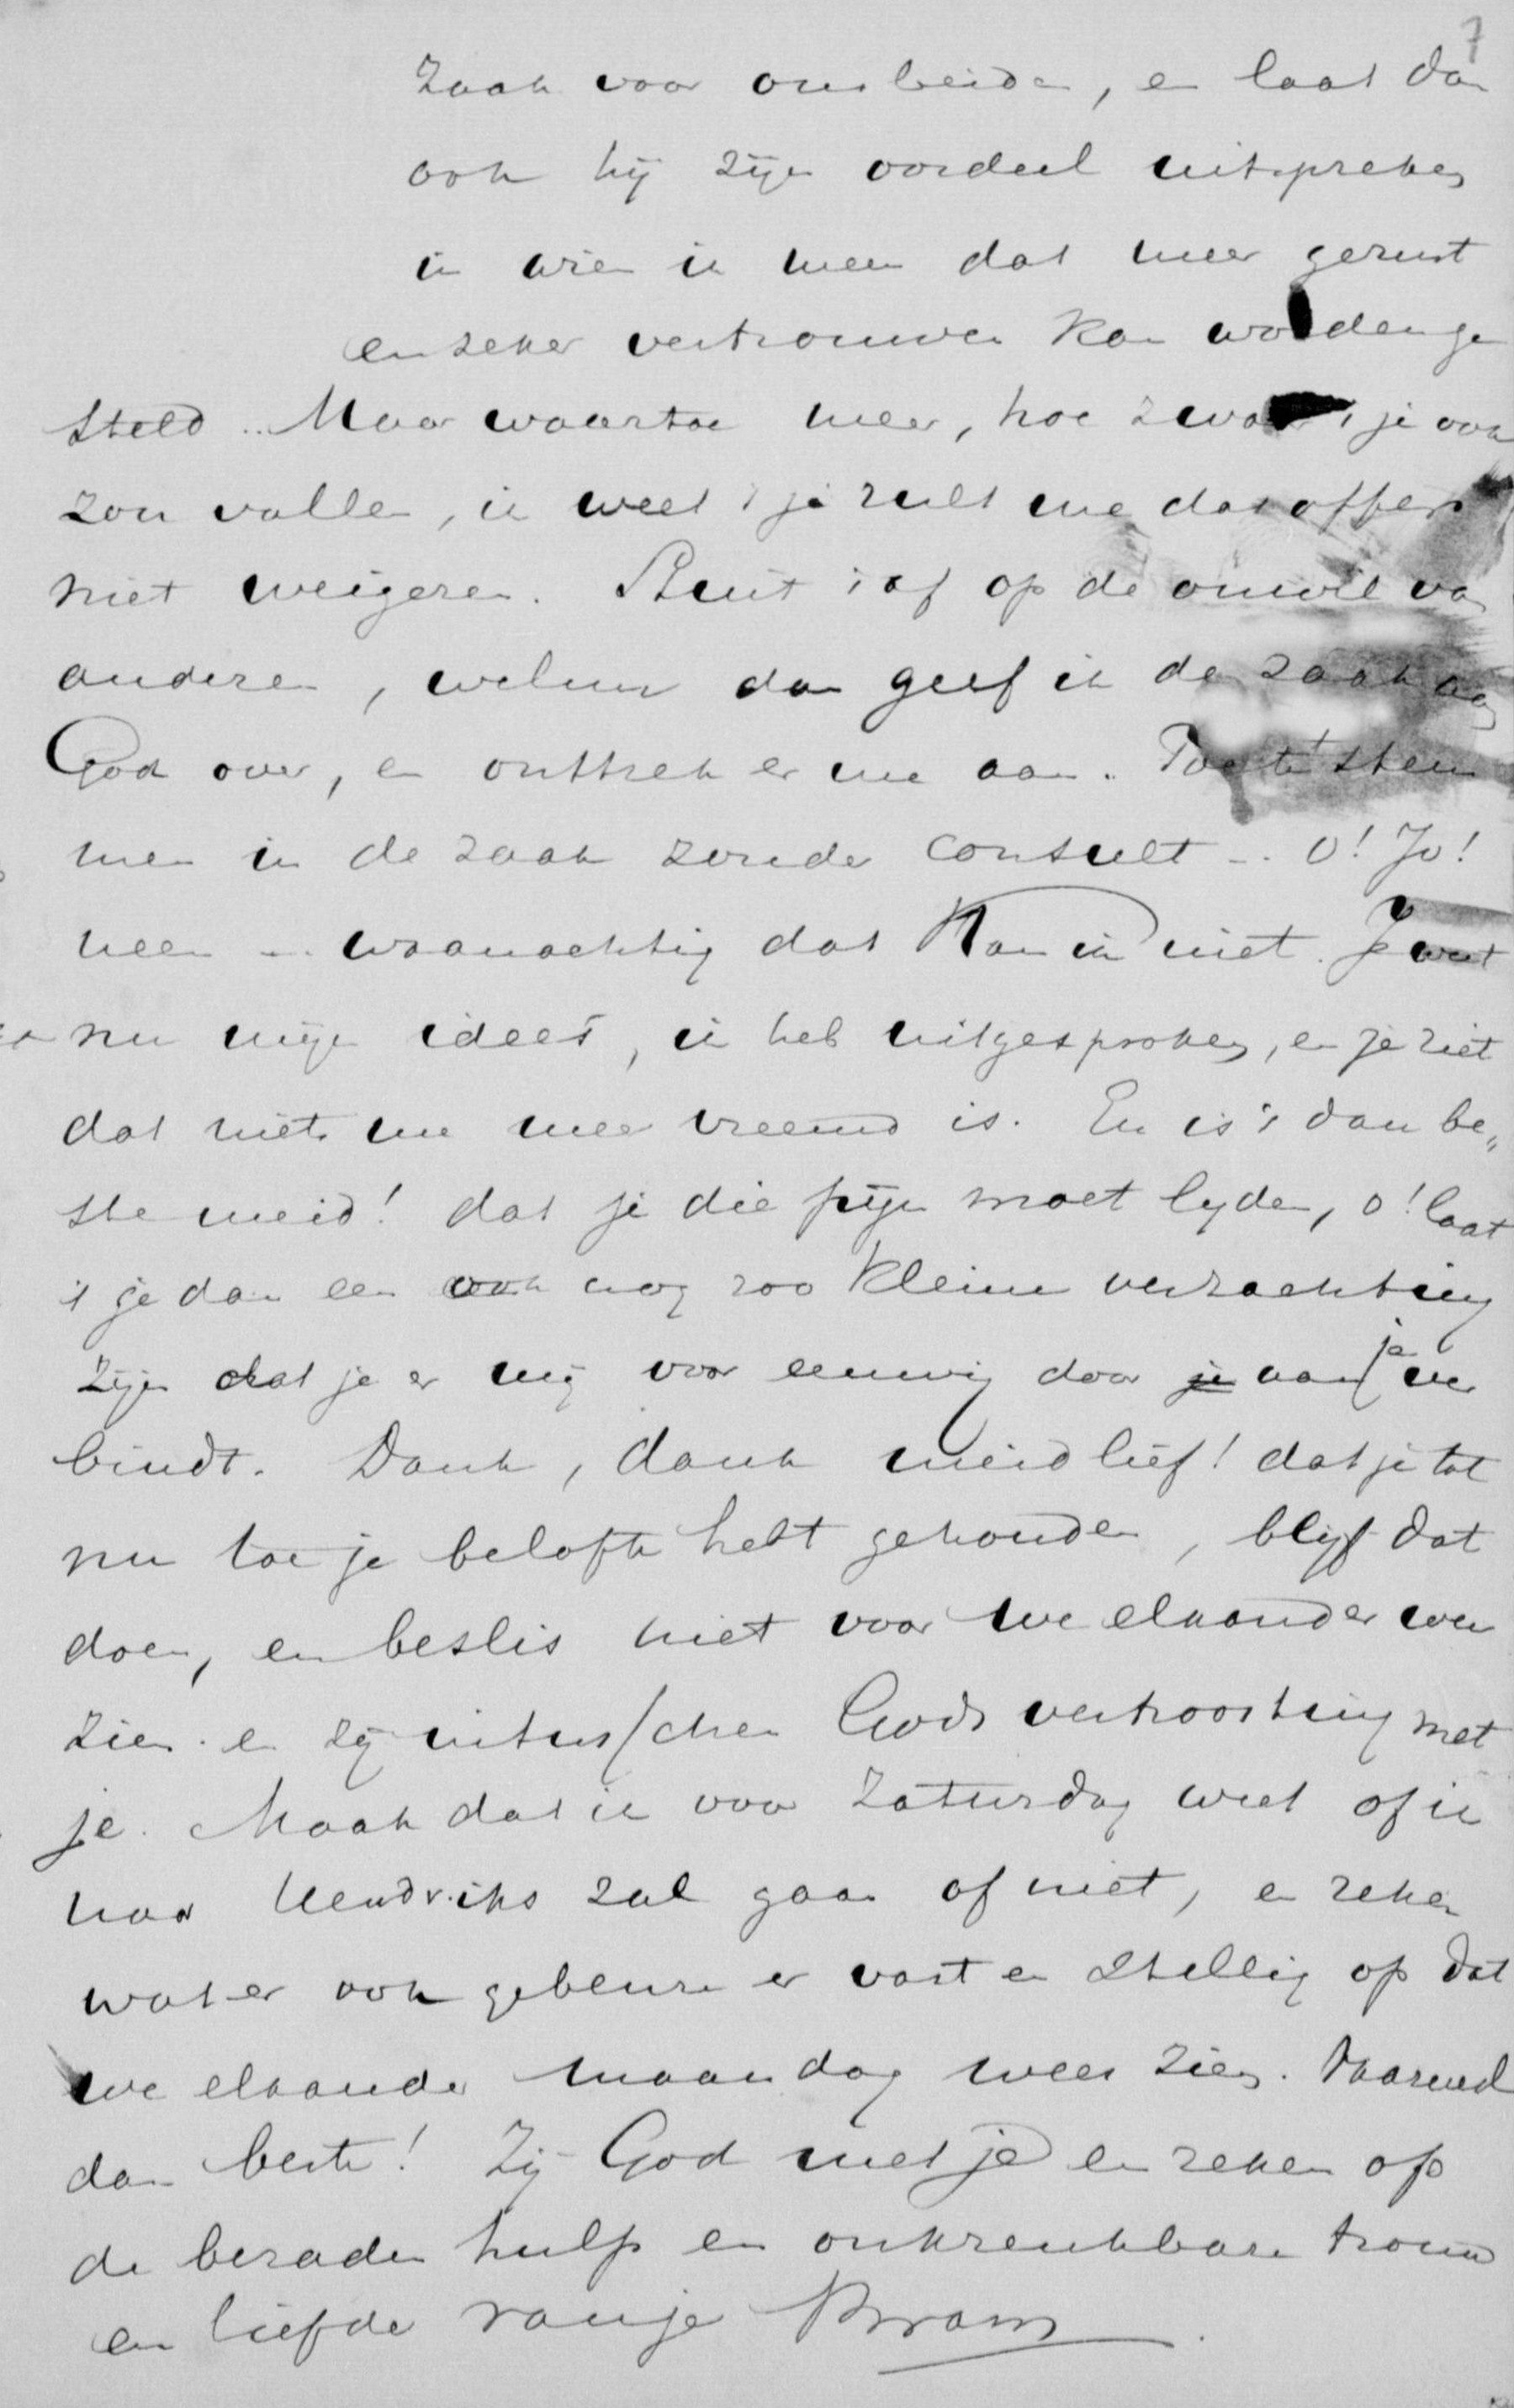 7
zaak voor ons beiden, en laat dan
ook hij zijn oordeel uitspreken
in wien ik meen dat meer gerust
en zeker vertrouwen kan worden ge
steld .. Maar waartoe meer, hoe zwaar 't je ook
zou vallen, ik weet 't je zult me dat offer
niet weigeren. Stuit 't af op de onwil van
anderen, welnu dan geef ik de zaak aan
God over, en onttrek er me aan. Toe te stem
men in de zaak zonder consult -.. O! Jo!
neen -.. waarachtig dat kan ik niet. Je weet
nu mijn ideës, ik heb uitgesproken, en je ziet
dat niets me meer vreemd is. En is 't dan be„
ste meid! dat je die pijn moet lyden, o! laat
't je dan een ook nog zoo kleine verzachting
zijn dat je er mij voor eeuwig door je aan je ver
bindt. Dank, dank meid lief! dat je tot
nu toe je belofte hebt gehouden, blijf dat
doen, en beslis niet voor we elkander weer
zien. en zij intusschen Gods vertroosting met
je. Maak dat ik voor Zaturdag weet of ik
naar Hendriks zal gaan of niet, en reken
wat er ook gebeure er vast en stellig op dat
we elkander maandag weer zien. Vaarwel
dan beste! Zij God met je en reken op
de beraden hulp en onkreukbare trouw
en liefde van je Bram